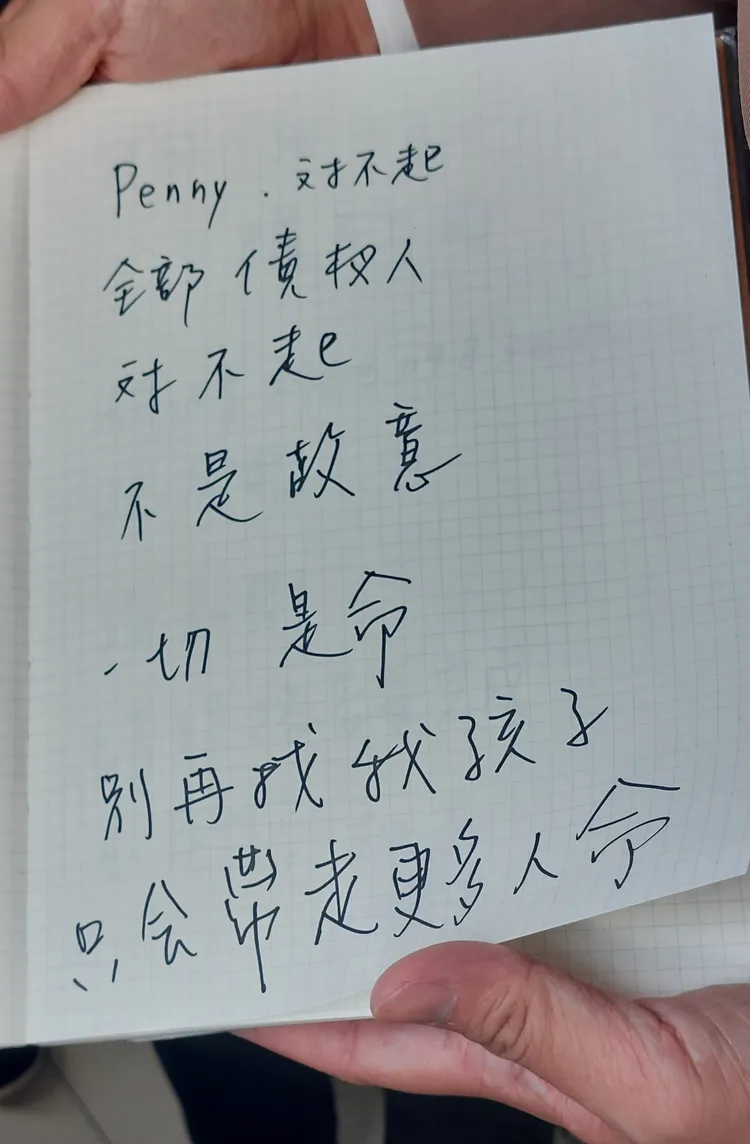 Penny．对不起
全部债权人
对不起
不是故意
一切是命
别再找我孩子
只会带走更多人命